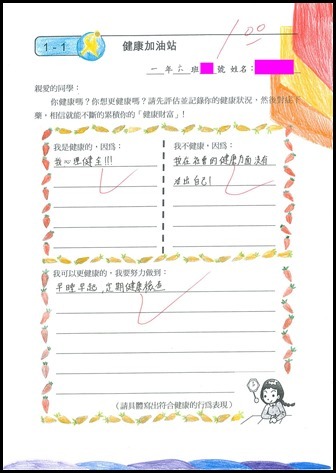 100
1-1 健康加油站
一年六班 號 姓名：
親愛的同學：
你健康嗎？你想更健康嗎？請先評估並記錄你的健康狀況，然後對症下
藥，相信就能不斷的累積你的「健康財富」！
我是健康的，因為：
我心理健全!!!
我不健康，因為：
我在飲食的健康方面沒有
管出自己！
我可以更健康的，我要努力做到：
早睡早起，定期健康檢查
（請具體寫出符合健康的行為表現）